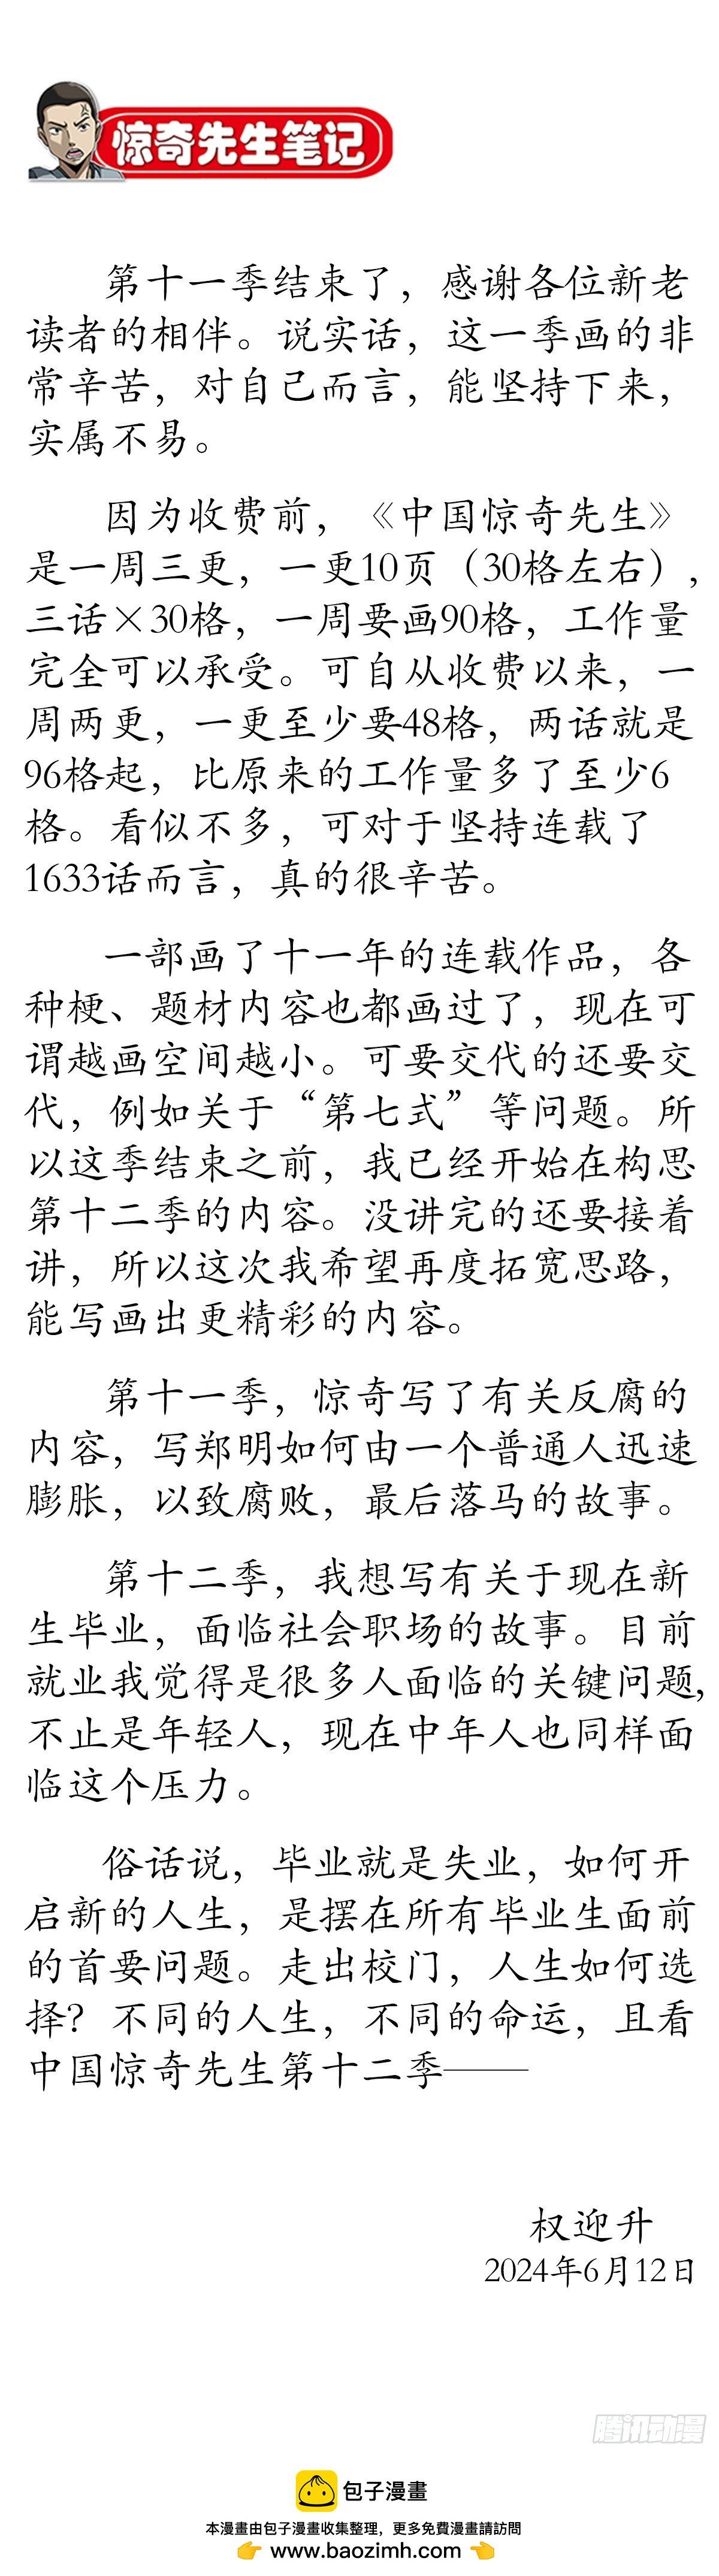 惊奇先生笔记
第十一季结束了，感谢各位新老
读者的相伴。说实话，这一季画的非
常辛苦，对自己而言，能坚持下来，
实属不易。
因为收费前，《中国惊奇先生》
是一周三更，一更10页（30格左右），
三话×30格，一周要画90格，工作量
完全可以承受。可自从收费以来，一
周两更，一更至少要48格，两话就是
96格起，比原来的工作量多了至少6
格。看似不多，可对于坚持连载了
1633话而言，真的很辛苦。
一部画了十一年的连载作品，各
种梗、题材内容也都画过了，现在可
谓越画空间越小。可要交代的还要交
代，例如关于“第七式”等问题。所
以这季结束之前，我已经开始在构思
第十二季的内容。没讲完的还要接着
讲，所以这次我希望再度拓宽思路，
能写画出更精彩的内容。
第十一季，惊奇写了有关反腐的
内容，写郑明如何由一个普通人迅速
膨胀，以致腐败，最后落马的故事。
第十二季，我想写有关于现在新
生毕业，面临社会职场的故事。目前
就业我觉得是很多人面临的关键问题，
不止是年轻人，现在中年人也同样面
临这个压力。
俗话说，毕业就是失业，如何开
启新的人生，是摆在所有毕业生面前
的首要问题。走出校门，人生如何选
择？不同的人生，不同的命运，且看
中国惊奇先生第十二季——
权迎升
2024年6月12日
腾讯动漫
包子漫畫
本漫畫由包子漫畫收集整理，更多免費漫畫請訪問
👉 www.baozimh.com 👈